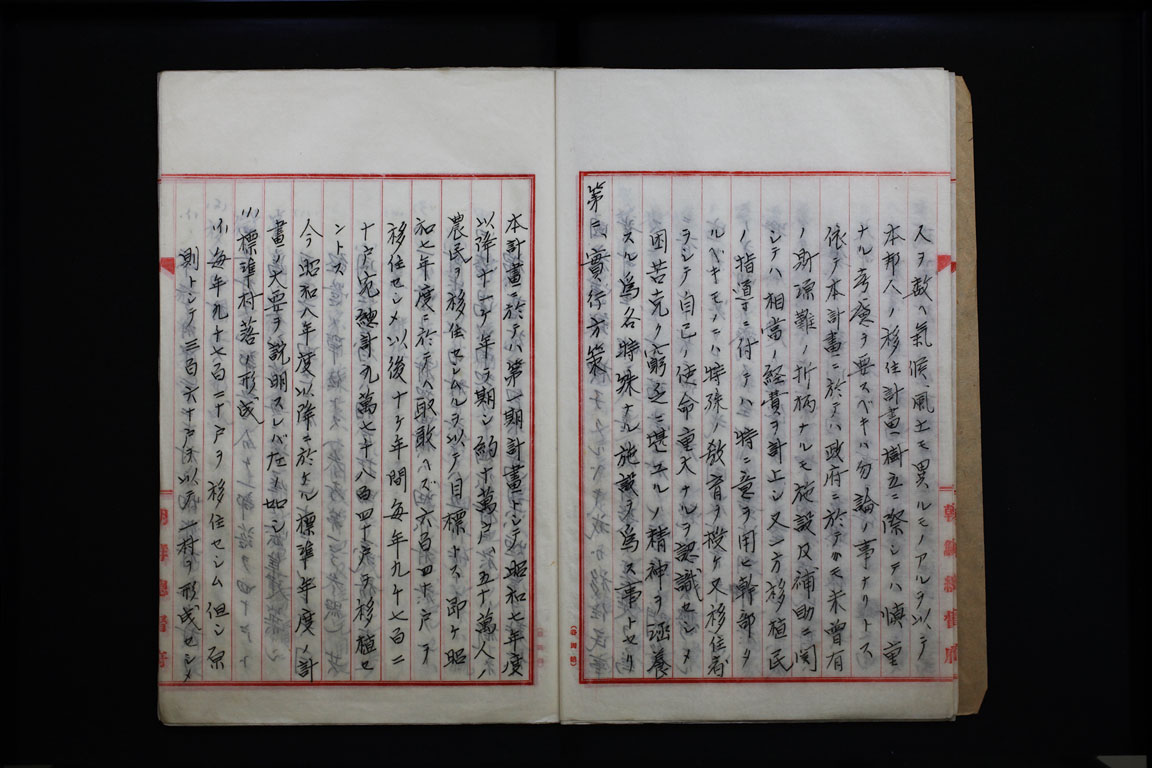 スヲ敵ハ氣候、風土モ異ルモノアルヲ以テ
本邦人ノ移住計畫樹立ニ際シテハ愼重
ナル考慮ヲ要スベキハ勿論ノ事ナリトス
依テ本計畫ニ於テハ政府ニ於テカモ未曾有
ノ財源難ノ折柄ナルモ施設及補助ニ関
シテハ相當ノ経費ヲ計上シ又一方移植民
ノ指導ニ付テハ特ニ意ヲ用ヒ幹部タ
ルベキモノニハ特殊ノ教育ヲ授ケ又移住者
ヲシテ自己ノ使命重大ナルヲ認識セシメ
困苦克ク窮乏ニ堪ユルノ精神ヲ涵養
スル為各特殊ナル施設ヲ為ス事トセリ
第二、實行方策
本計畫ニ於テハ第一期計畫トシテ昭和七年度
以降十一ケ年ヲ期シ約十萬戸、五十萬人ノ
農民ヲ移住セシムルヲ以テ目標トス即ケ昭
和七年度ニ於テハ取敢ヘズ六百四十戸ヲ
移住セシメ以後十ケ年間毎年九千七百二
十戸宛總計九萬七千八百四十戸ヲ移植セ
ントス
今昭和八年度以降ニ於ケル標準年度ノ計
畫ノ大要ヲ説明スレバ左ノ如シ
(一)標準村落ノ形成
イ、毎年九千七百二十戸ヲ移住セシム但シ原
則トシテ三百六十戸ヲ以テ一村ヲ形成セシメ
朝鮮總督府